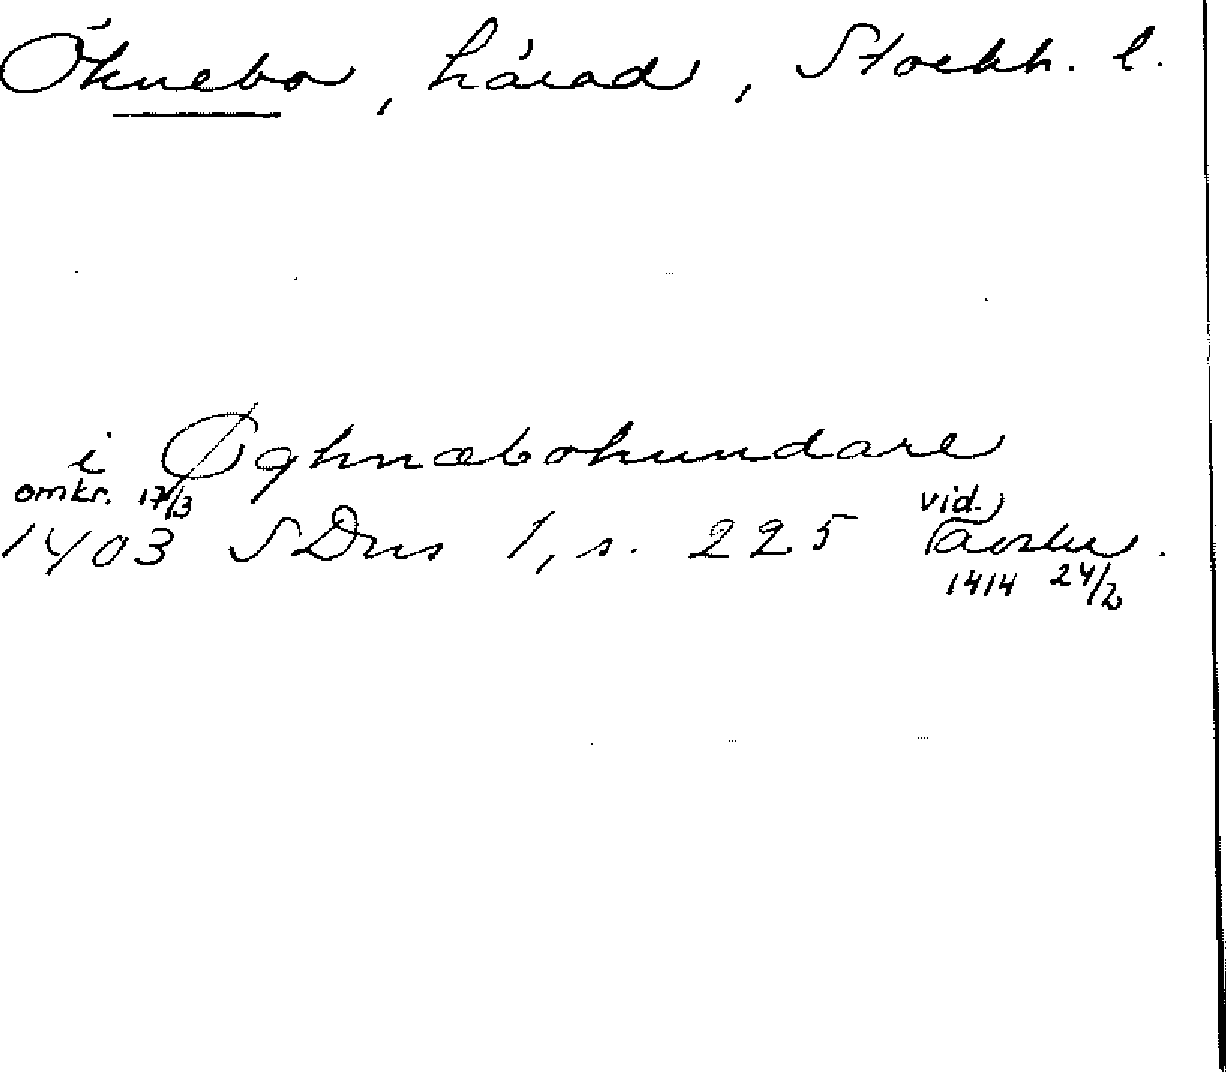 Öknebo, härad, Stockh. l.
i Øghnæbohundare
omkr. 17/3 vid.
1403 SDns 1, s. 225 avskr.
1414 24/2